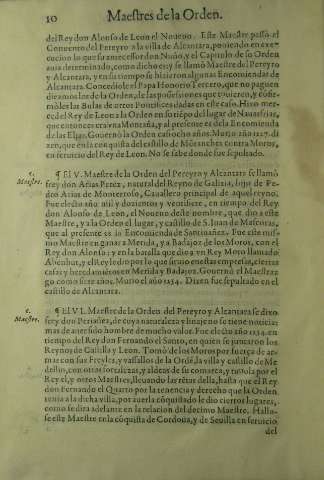 10 Maestres de la Orden.
del Rey don Alonso de Leon el Noueno. Este Maestre passó el
Conuento del Pereyro a la villa de Alcantara, poniendo en exe-
cucion lo que su antecessor don Nuño, y el Capitulo de su Orden
auia determinado, como dicho es: y se llamò Maestre del Pereyro
y Alcantara, y en su tiempo se hizieron algunas Encomiendas de
Alcantara. Concediole el Papa Honorio Tercero, que no paguen
diezmos los de la Orden, de las possessiones que tuuieren, y confir-
mòles las Bulas de otros Pontifices dadas en este caso. Hizo mer-
ced del Rey de Leon a la Orden en su tiẽpo del lugar de Nauasfrias,
que entonces era vna Montaña, y al presente es de la Encomienda
de las Elgas. Gouernò la Orden casi ocho años. Murio año 1227. di-
zen, que en la conquista del castillo de Mõtanches contra Moros,
en seruicio del Rey de Leon. No se sabe donde fue sepultado.
5.
Maestre.
¶ El V. Maestre de la Orden del Pereyro y Alcantara se llamò
frey don Arias Perez, natural del Reyno de Galizia, hijo de Pe-
dro Arias de Monterroso, Cauallero principal de aquel reyno.
Fue electo año mil y dozientos y ventisiete, en tiempo del Rey
don Alonso de Leon, el Noueno deste nombre, que dio a este
Maestre, y a la Orden el lugar, y castillo de S. Iuan de Mascoras,
que al presente es la Encomienda de Santiuañez. Fue este mis-
mo Maestre en ganar a Merida, y a Badajoz de los Moros, con el
Rey don Alonso: y en la batalla que dio a vn Rey Moro llamado
Abenhut, y el Rey le dio por lo que siruio en estas empresas, ciertas
casas y heredamiẽtos en Merida y Badajoz. Gouernò el Maestraz-
go como siete años. Murio el año 1234. Dizen fue sepultado en el
castillo de Alcantara.
6.
Maestre.
¶ El VI. Maestre de la Orden del Pereyro y Alcantara se dixo
frey don Periañez, de cuya naturaleza y linaje no se tiene noticia:
mas de auer sido hombre de mucho valor. Fue electo año 1234. en
tiempo del Rey don Fernando el Santo, en quien se juntaron los
Reynos de Castilla y Leon. Tomò de los Moros por fuerça de ar-
mas con sus Freyles, y vassallos de la Ordẽ, la villa y castillo de Me-
dellin, con otras fortalezas, y aldeas de su comarca, y tuuola por el
Rey el, y otros Maestres, lleuando las rẽtas della, hasta que el Rey
don Fernando el Quarto por la tenencia y derecho que la Orden
tenia a la dicha villa, por auerla cõquistado le dio ciertos lugares,
como se dira adelante en la relacion del decimo Maestre. Hallo-
se este Maestre en la cõquista de Cordoua, y de Seuilla en seruicio
del